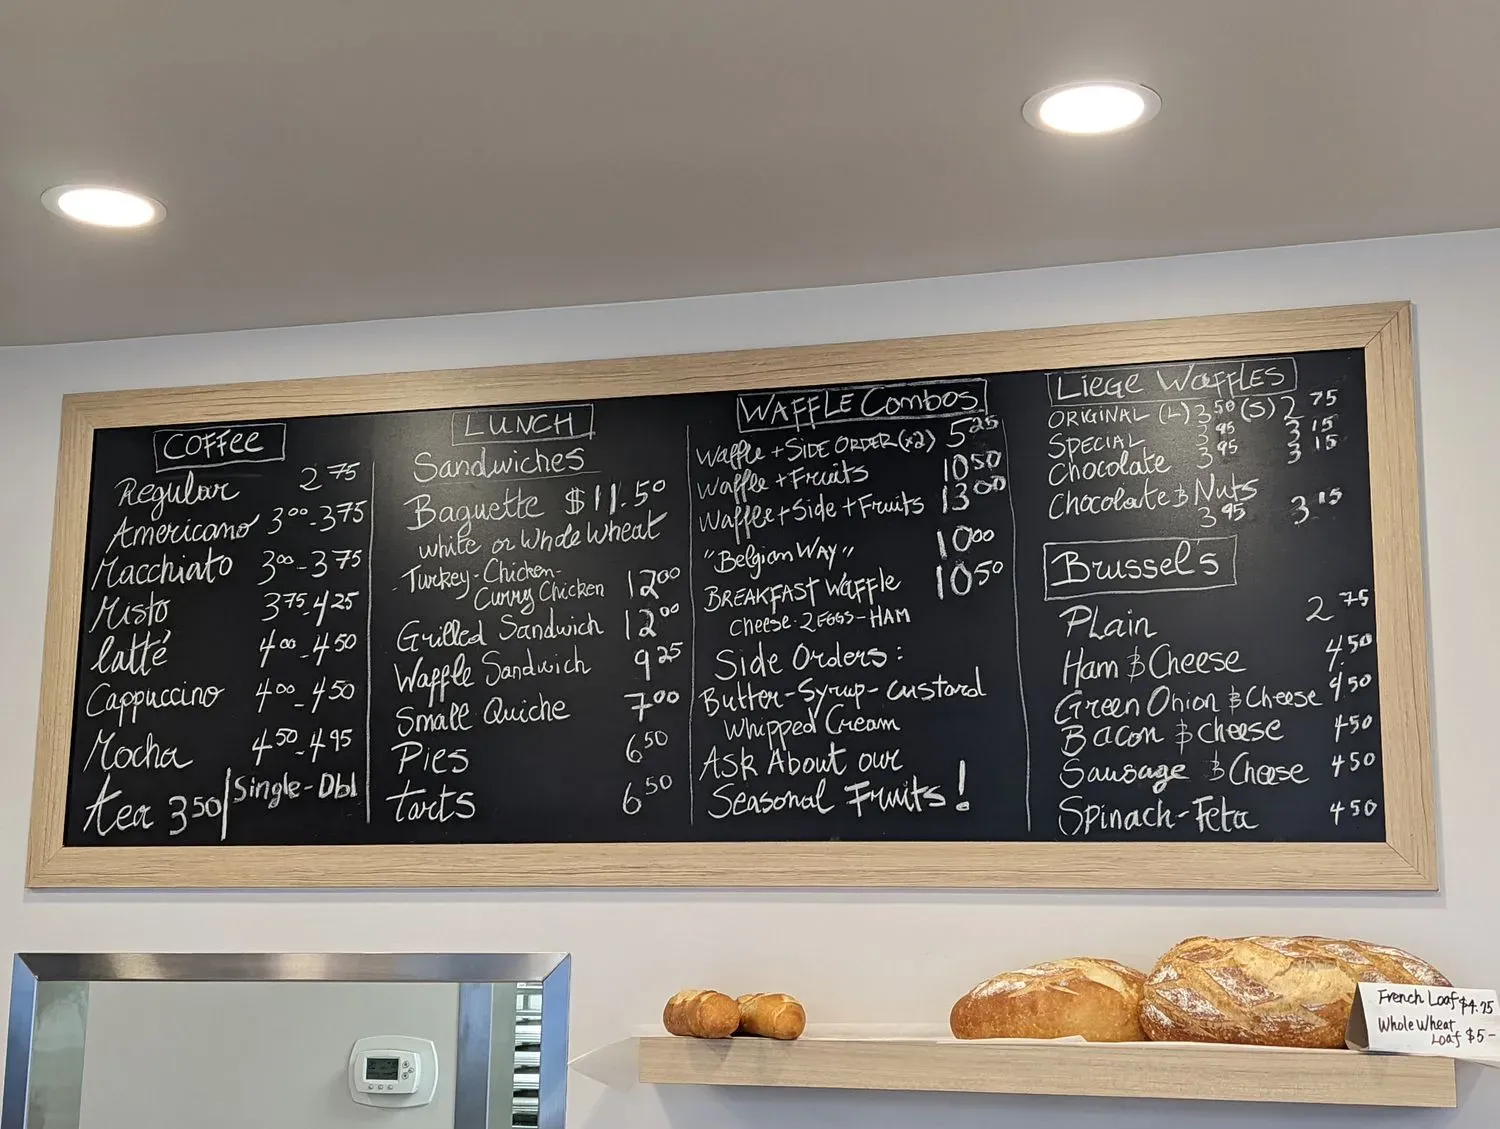 COFFee
Regular 2 75
Americano 3 00 - 3 75
Macchiato 3 00 - 3 75
Misto 3 75 - 4 25
latté 4 00 - 4 50
Cappuccino 4 00 - 4 50
Mocha 4 50 - 4 95
tea 3 50 / Single - Dbl
LUNCH
Sandwiches
Baguette $11.50
white or Whole Wheat
Turkey - Chicken -
Curry Chicken 12 00
Grilled Sandwich 12 00
Waffle Sandwich 9 25
Small Quiche 7 00
Pies 6 50
tarts 6 50
WAFFLE Combos
Waffle + SIDE ORDER (x2) 5 25
Waffle + Fruits 10 50
Waffle + Side + Fruits 13 00
"Belgian WAY" 10 00
BREAKFAST WAFFLE 10 50
Cheese - 2 EGGS - HAM
Side Orders :
Butter - Syrup - Custard
Whipped Cream
Ask About our
Seasonal Fruits !
LIEGE WAFFLES
ORIGINAL (L) 3 50 (S) 2 75
SPECIAL 3 95 3 15
Chocolate 3 95 3 15
Chocolate & Nuts
3 95 3 15
Brussel's
PLain 2 75
Ham & Cheese 4.50
Green Onion & Cheese 4 50
Bacon & Cheese 4 50
Sausage & Cheese 4 50
Spinach - Feta 4 50
French Loaf $4.25
Whole Wheat
Loaf $5-